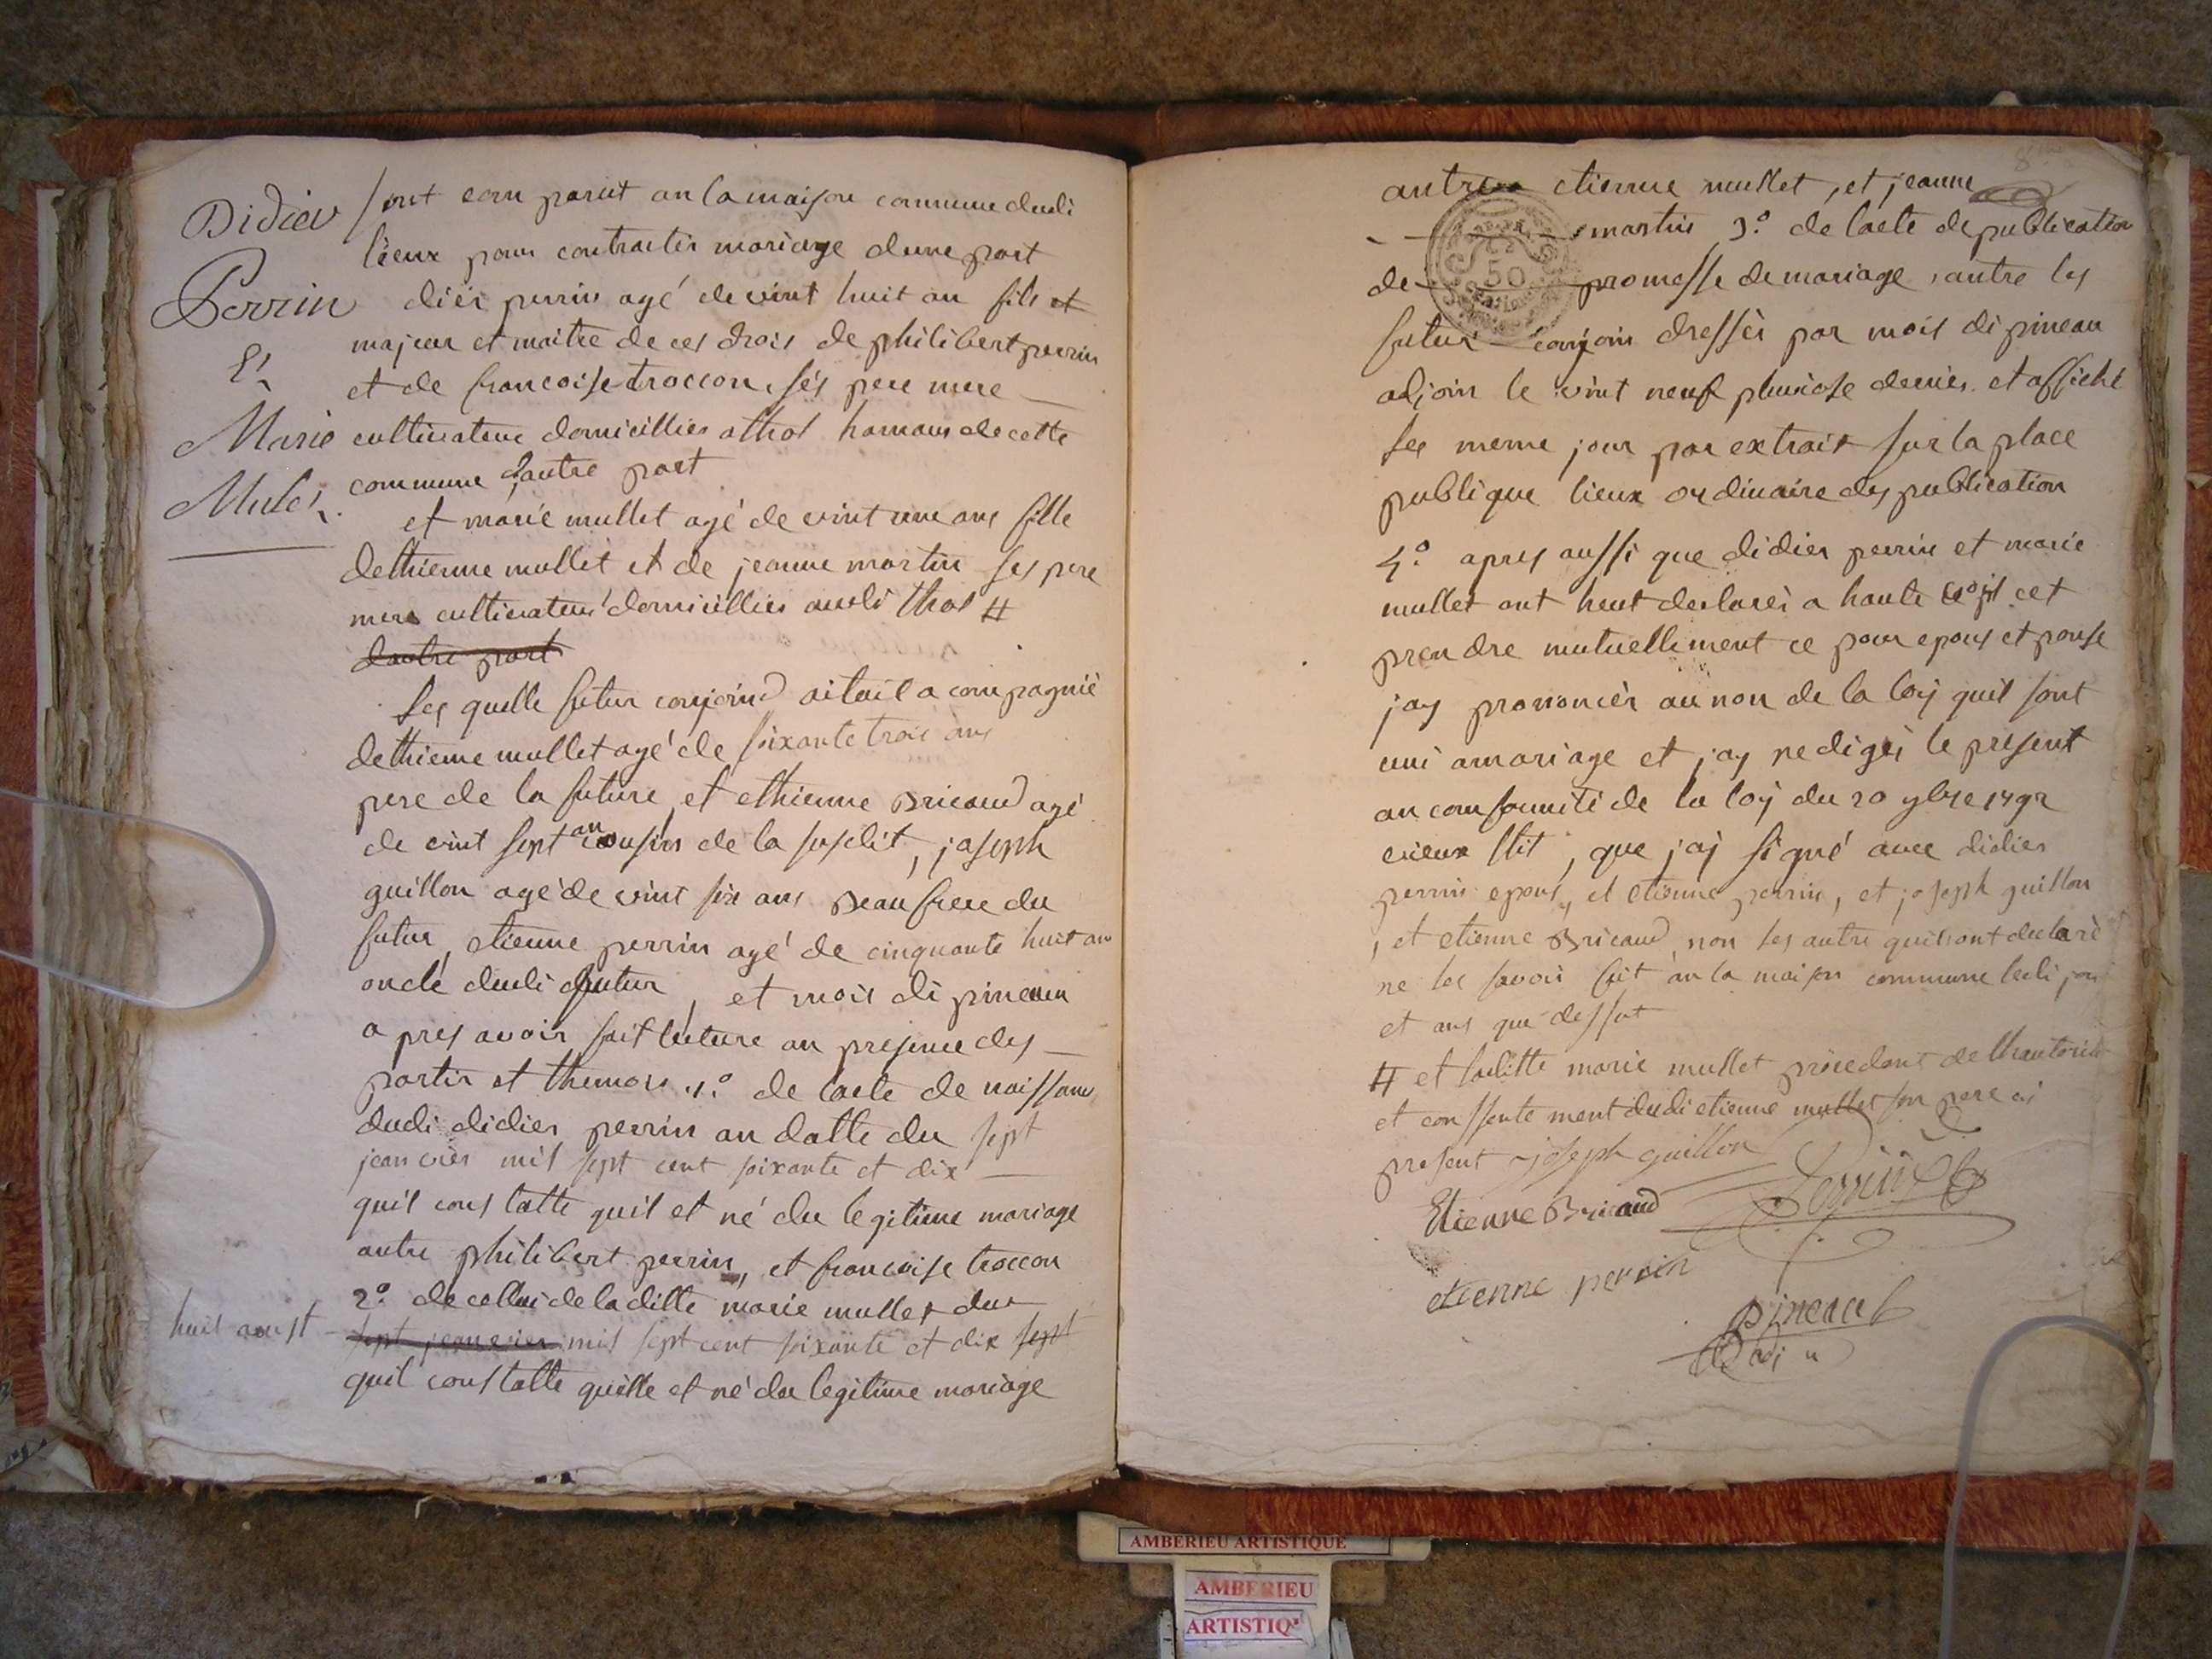 Didier
Perrin
Et
Marie
Mulet
sont com parut an la maison commune dudi
lieux pour contracter mariage dune part
diér perrin agé de vint huit an fils et
majeur et maitre de ces drois de philibert perrin
et de francoise troccon, sés pere mere
cultivateur domicillier athol hamaus de cette
commune d'autre part
et marie mullet agé de vint une ans fille
dethienne mullet et de jeanne martin ses pere
mere cultivateur domicillier audi thol #
dautre part
les quelle futur conjoind aitait a compagnié
dethienne mullet agé de soixante trois ans
pere de la future, et ethienne Bricaud agé
de vint sept an cousin de la susdit, joseph
guillon agé de vint six ans Beau frere du
futur, etienne perrin agé de cinquante huit an
oncle dudi futur, et mois di pineau
a pres avoir fait lecture an presence des
partis et themois .1.° de lacte de naissance
dudi didier perrin an datte du sept
jeanvier mil sept cent soixante et dix
quil cons tatte quil et né du legitime mariage
autre philibert perrin, et francoise troccon
2.° de celluis de la ditte marie mullet du
huit aoust
sept jeanvier mil sept cent soixante et dix sept
quil constatte quélle et né du legitime mariage
antre etienne mullet, et jeanne
martin 3.° de lacte de publication
50
de promesse de mariage, autre les
futur conjoin dressér par mois di pineau
adjoin le vint neuf pluviose dernier et affiché
les meme jour par extrait sur la place
publique lieux ordinaire des publication
4.° apres aussi que didier perrin et marie
mullet ont heut declarér a haute cet
prendre mutuellement ce pour epous et pouse
jay prononcér au non de la loy quil sont
uni amariage et jay redigér le present
an comformité de la loy du 20 9bre 1792
vieux stit, que jaj signé avec didier
perrin epous, et etienne perrin, et joseph guillon
, et etienne Bricaud non les autre quil ont declaré
ne les savoir fait an la maison commune ledi jour
et ans que dessut
# et laditte marie mullet procedant de lhautorité
et conssente ment dudi etienne mullet son pere ai
present joseph guillon
Perrin
Etienne Bricaud
etienne perrin
pineau
adj
AMBERIEU ARTISTIQUE
AMBERIEU
ARTISTIQ